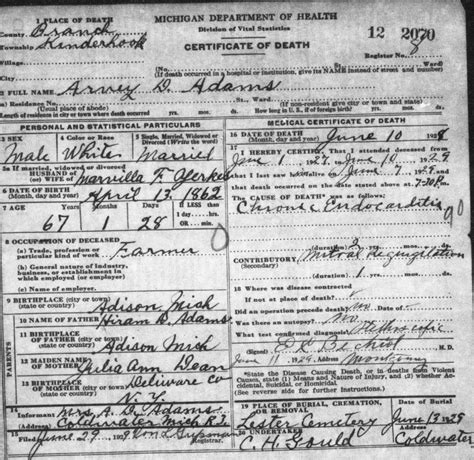 MICHIGAN DEPARTMENT OF HEALTH
Division of Vital Statistics
CERTIFICATE OF DEATH
12 2070
Register No. 8
1 PLACE OF DEATH
County Branch
Township Kinderhook
City No. St., Ward
(If death occurred in a hospital or institution, give its NAME instead of street and number)
2 FULL NAME Arvey D. Adams
(a) Residence No. St., Ward.
(Usual place of abode)
(If non-resident give city or town and state)
How long in U. S., if of foreign birth?
PERSONAL AND STATISTICAL PARTICULARS
3 SEX
Male
4 Color or Race
White
5 Single, Married, Widowed or Divorced (Write the word)
Married
5a If married, widowed or divorced
HUSBAND of
(or) WIFE of Marvilla F. Yerkes
6 DATE OF BIRTH
(Month, day and year) April 13, 1862
7 AGE Years Months Days If LESS than 1 day
67 1 28
OR min.
8 OCCUPATION OF DECEASED
(a) Trade, profession or particular kind of work Farmer
(b) General nature of industry, business, or establishment in which employed (or employer)
(c) Name of employer
9 BIRTHPLACE (city or town)
(state or country) Adison Mich
PARENTS
10 NAME OF FATHER Hiram D. Adams
11 BIRTHPLACE OF FATHER (city or town)
(state or country) Adison Mich
12 MAIDEN NAME OF MOTHER Julia Ann Dean
13 BIRTHPLACE OF MOTHER (city or town)
(state or country) Deliware Co
N.Y.
14 Informant Mrs. A. D. Adams
(Address) Coldwater Mich R
15 Filed June 29, 1929
MEDICAL CERTIFICATE OF DEATH
16 DATE OF DEATH
(Month, day and year) June 10 192
17 I HEREBY CERTIFY, That I attended deceased from
June 1 1927, to June 10, 1929
that I last saw him alive on June 9 1929 and
that death occurred on the date stated above at 7:30 P.M.
The CAUSE OF DEATH* was as follows:
Chronic Endocarditis
90
(duration) 2
CONTRIBUTORY Mitral Regurgitation
(Secondary)
(duration) 1
18 Where was disease contracted
If not at place of death?
Did an operation precede death? no
Was there an autopsy? no
What test confirmed diagnosis? Stethoscopic
M. D.
June 11 1929 (Address) Montgomery
*State the Disease Causing Death, or in deaths from Violent Causes, state (1) Means and Nature of Injury, and (2) whether Accidental, Suicidal, or Homicidal.
(See reverse side for further instructions.)
19 PLACE OF BURIAL, CREMATION, OR REMOVAL
Lester Cemetery June 13 1929
20 UNDERTAKER
C. H. Gould Coldwater